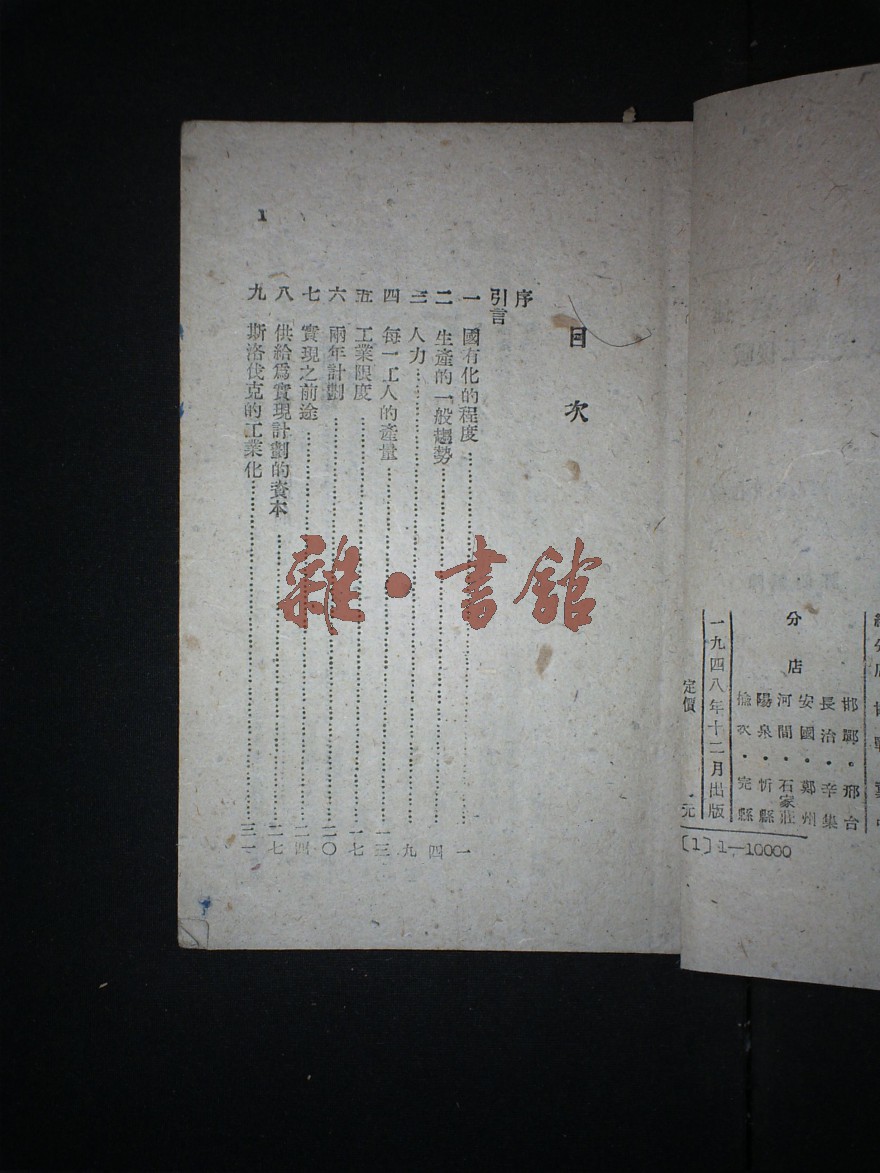 目次
序
引言
一 國有化的程度……一
二 生產的一般趨勢……四
三 人力……九
四 每一工人的產量……一三
五 工業限度……一七
六 兩年計劃……二〇
七 實現之前途……二四
八 供給爲實現計劃的資本……二七
九 斯洛伐克的工業化……三一
1
雜·書館
邯鄲·邢台
長治·辛集
安國·鄭州
河間·石家莊
陽泉·忻縣
榆次·完縣
分店
一九四八年十二月出版
定價 元
[1]1—10000